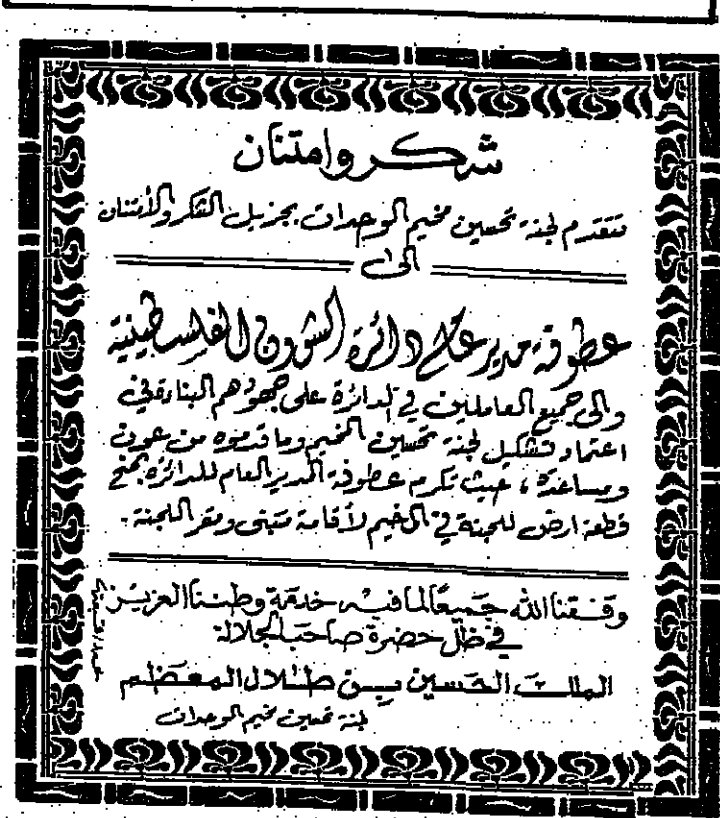 شكر وامتنان
تتقدم لجنة تحسين مخيم الوحدات بجزيل الشكر والأمتنان
الى
عطوفة مدير عام دائرة الشؤون الفلسطينية
والى جميع العاملين في الدائرة على جهودهم البناءة في
اعتماد تشكيل لجنة تحسين المخيم وما قدموه من عون
ومساعدة ، حيث تكرم عطوفة المدير العام للدائرة بمنح
قطعة ارض للجنة في المخيم لأقامة مبنى ومقر اللجنة .
وفقنا الله جميعاً لما فيه خدمة وطننا العزيز
في ظل حضرة صاحب الجلالة
الملك الحسين بن طلال المعظم
لجنة تحسين مخيم الوحدات